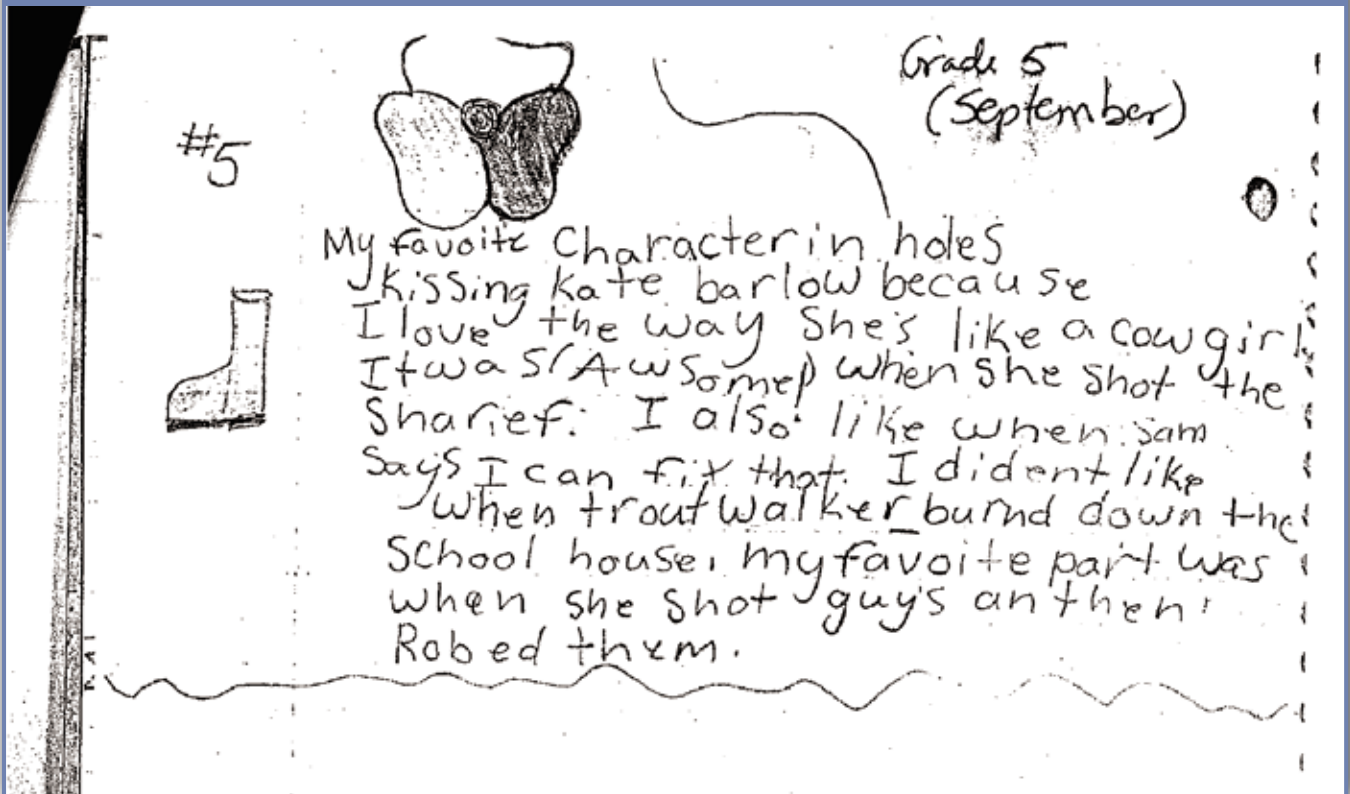 Grade 5
(September)
#5
My favoite Character in holes
kissing kate barlow because
I love the way She's like a cowgirl.
It was (Awsome!) when she shot the
Sharief. I also like when sam
says I can fix that. I dident like
when trout walker burnd down the
School house. my favoite part was
when she shot guys an then
Robed them.